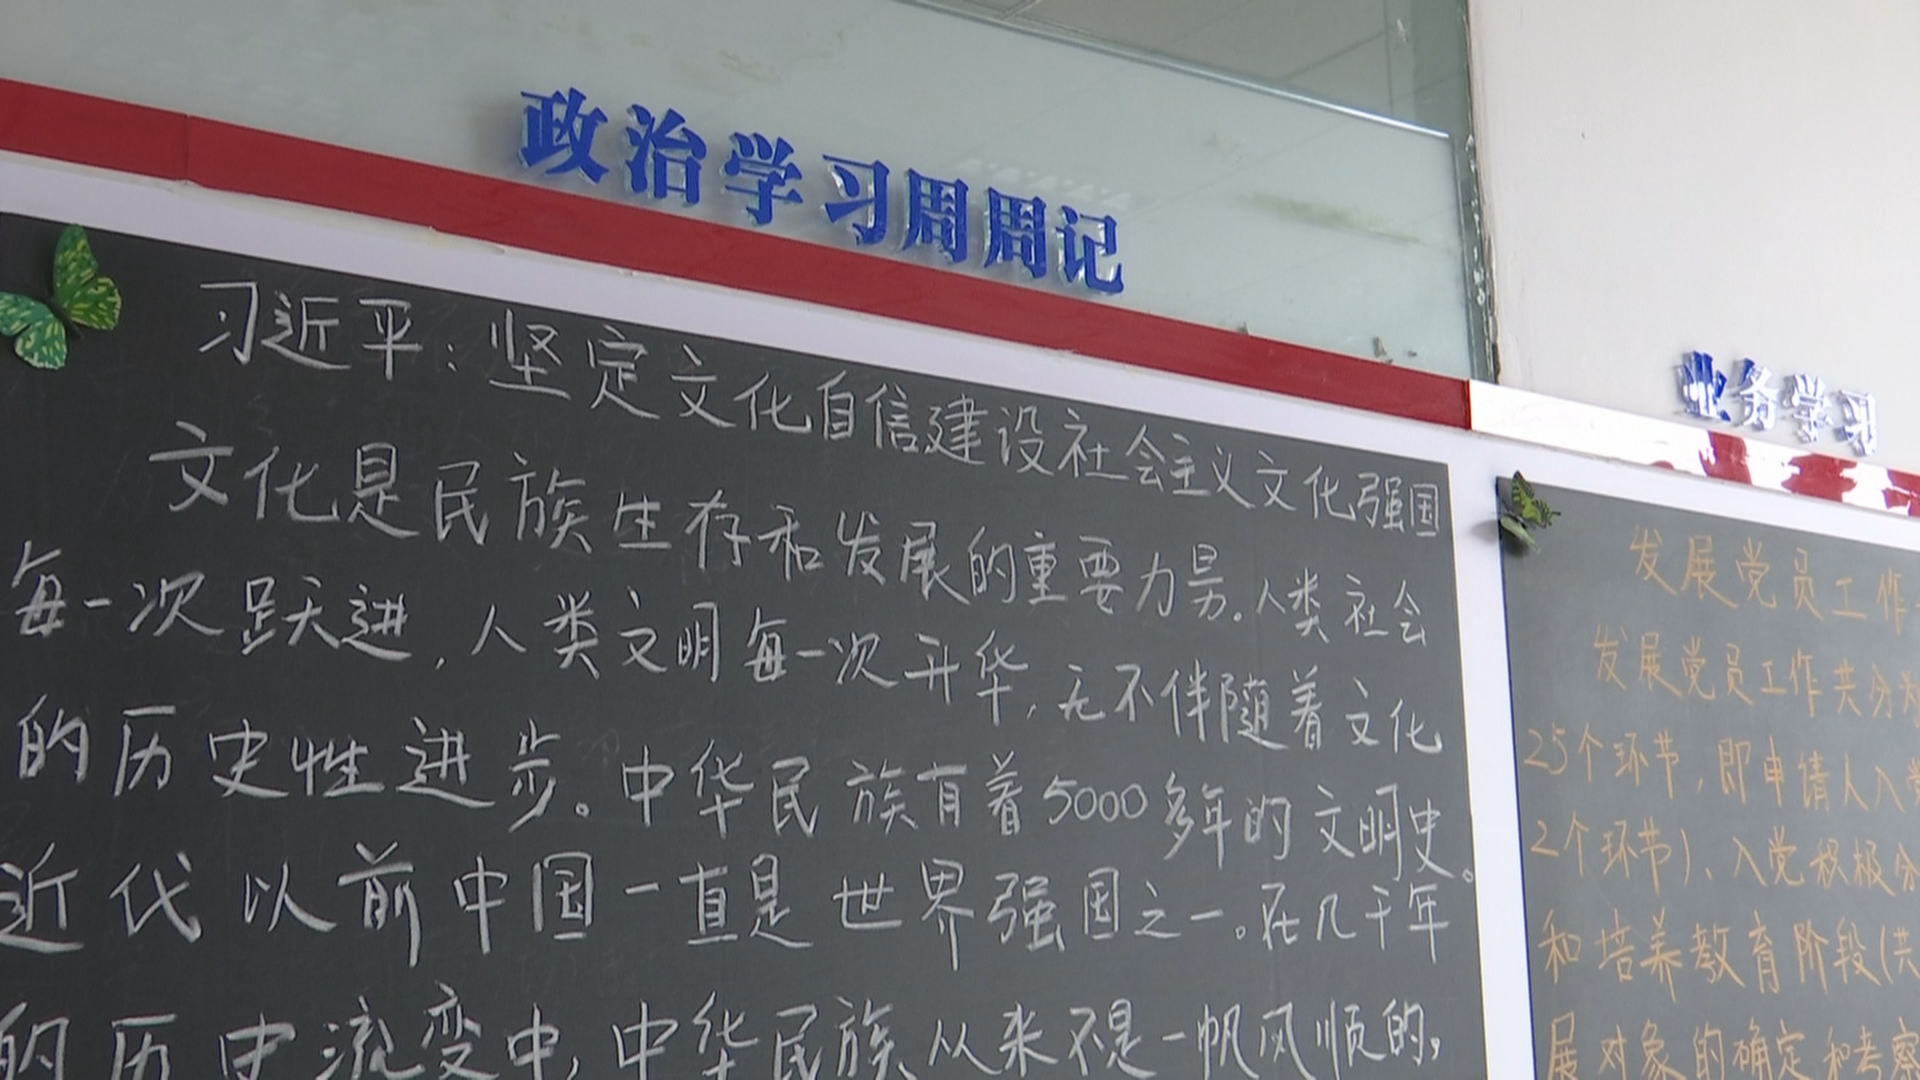 政治学习周周记
习近平：坚定文化自信建设社会主义文化强国
文化是民族生存和发展的重要力另。人类社会
每一次跃进，人类文明每一次升华，无不伴随着文化
的历史性进步。中华民族有着5000多年的文明史。
近代以前中国一直是世界强国之一。在几千年
的历史流变中，中华民族从来不是一帆风顺的，
业务学习
发展党员工作
发展党员工作共分为
25个环节，即申请人入党
2个环节）、入党积极分
和培养教育阶段（共
展对象的确定和考察